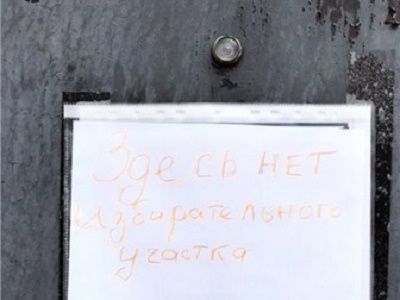 Здесь нет
избирательного
участка